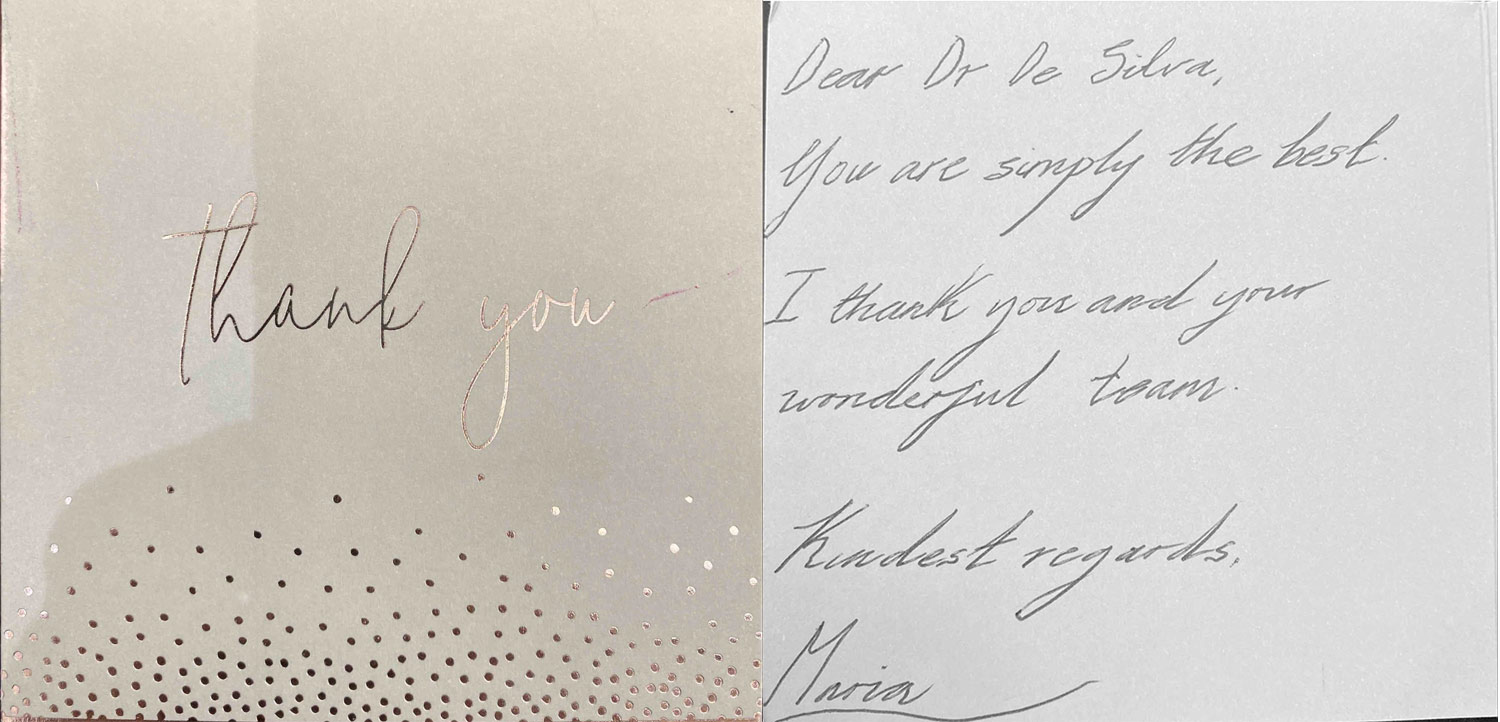 thank you
Dear Dr De Silva,
You are simply the best.
I thank you and your
wonderful team.
Kindest regards,
Maria